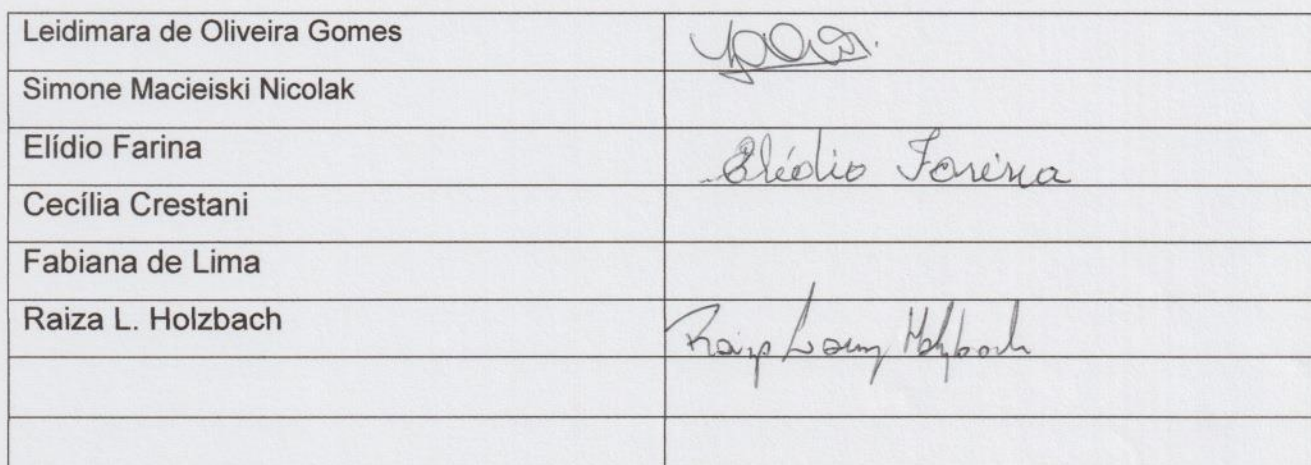 Leidimara de Oliveira Gomes
Simone Macieiski Nicolak
Elídio Farina Elédio Farina
Cecília Crestani
Fabiana de Lima
Raiza L. Holzbach Raiza Holzbach